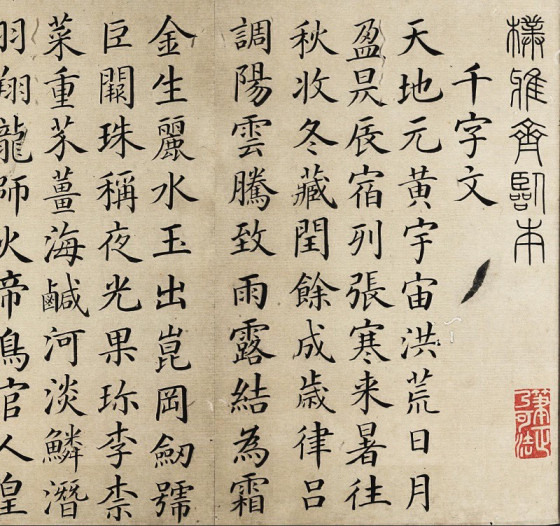 樸雅齋臨本
千字文
天地元黃宇宙洪荒日月
盈昃辰宿列張寒来暑往
秋收冬藏閏餘成歲律呂
調陽雲騰致雨露結為霜
金生麗水玉出崑岡劒號
巨闕珠稱夜光果珎李柰
菜重芥薑海鹹河淡鱗潛
羽翔龍師火帝鳥官人皇